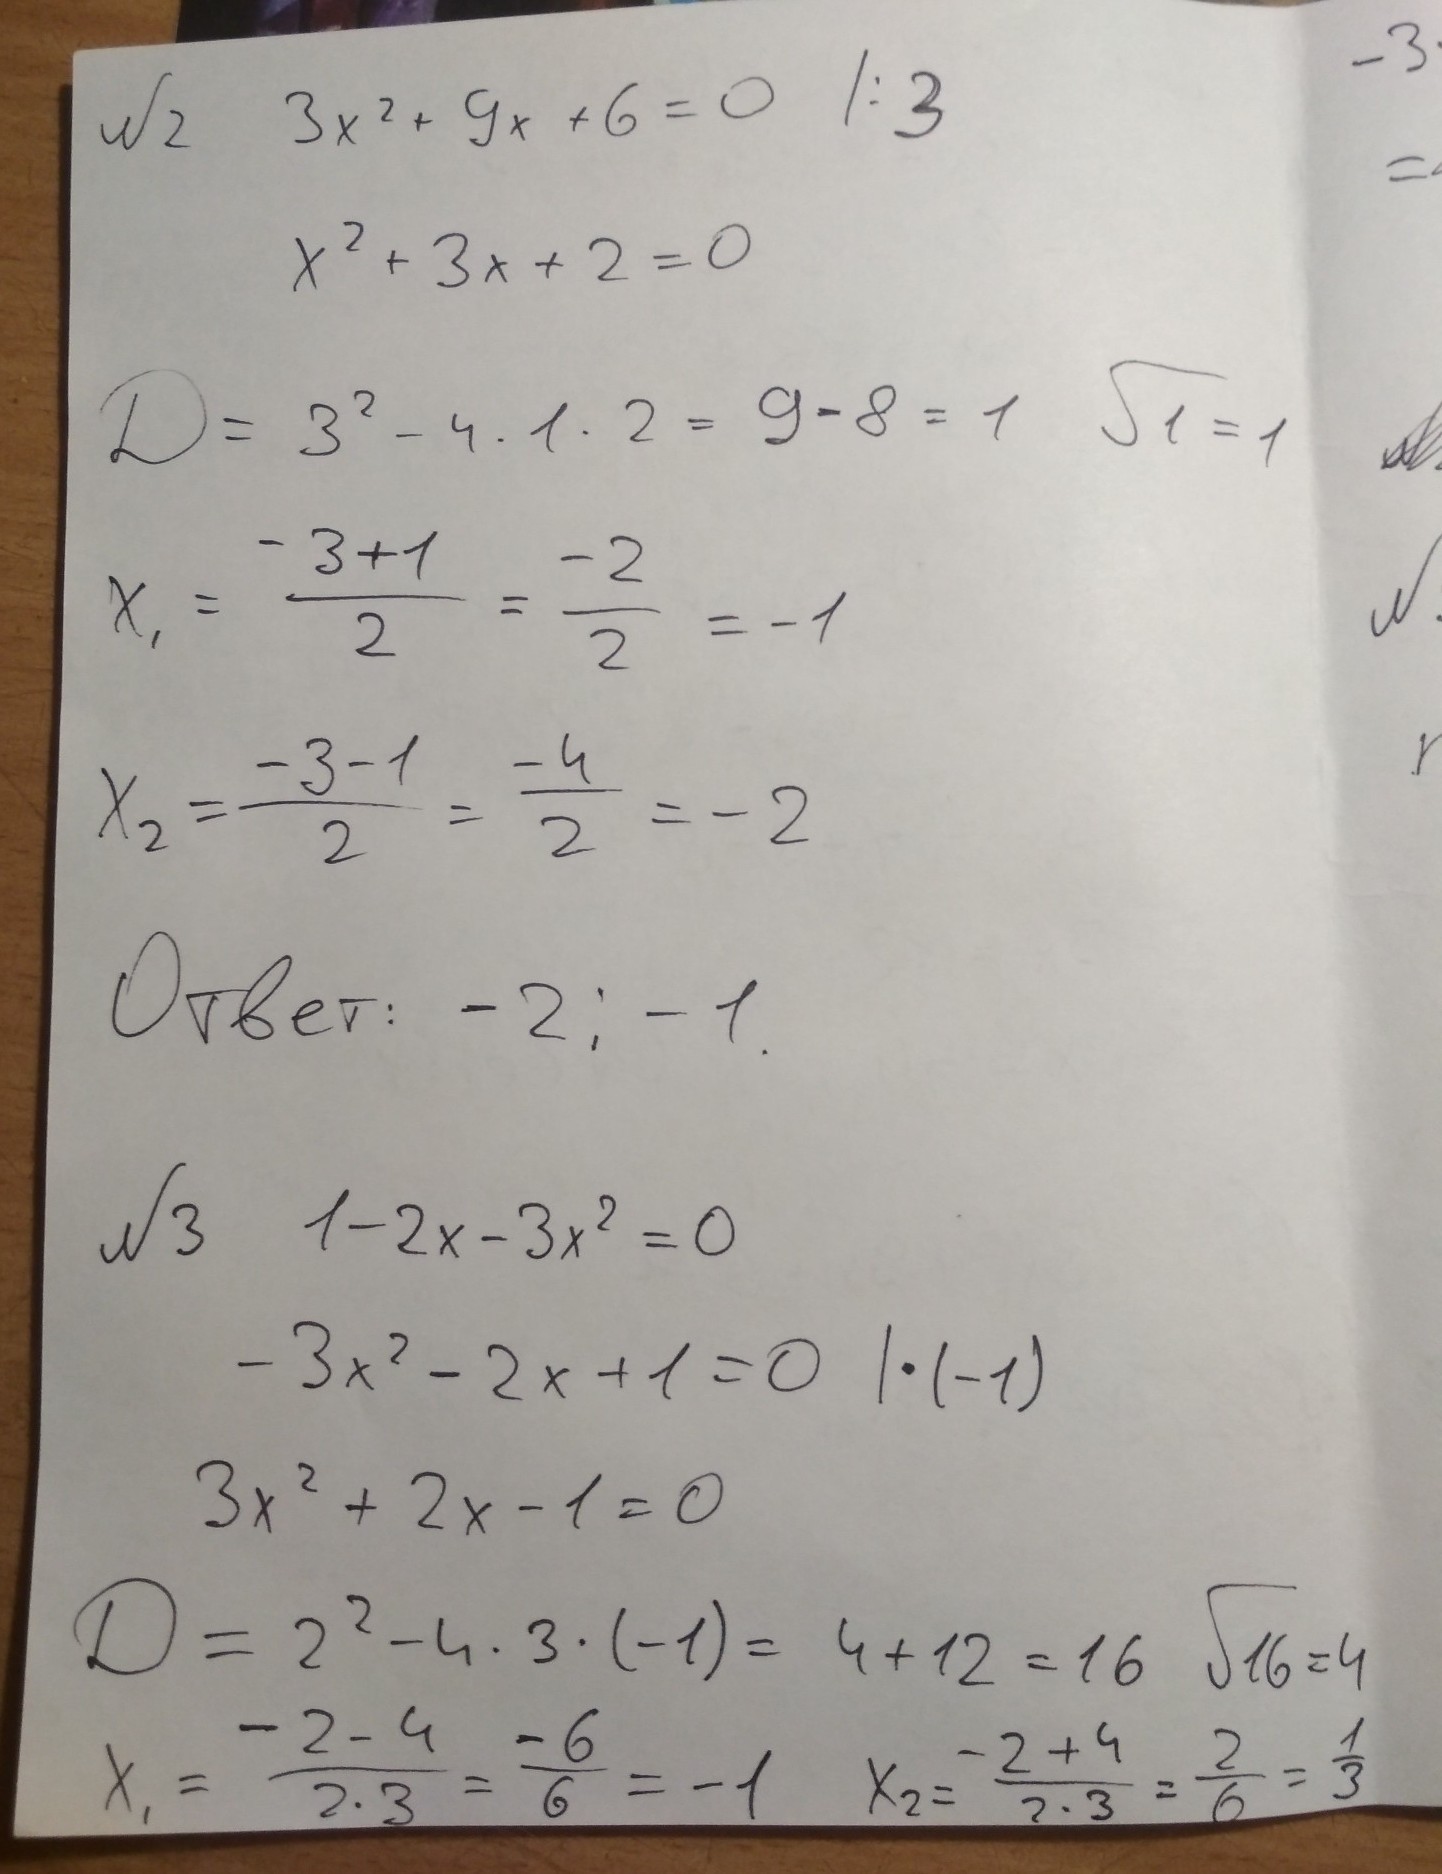 №2 3x² + 9x + 6 = 0 |:3
x² + 3x + 2 = 0
D = 3² - 4 · 1 · 2 = 9 - 8 = 1 √1 = 1
x₁ = (-3+1)/2 = -2/2 = -1
x₂ = (-3-1)/2 = -4/2 = -2
Ответ: -2; -1.
№3 1 - 2x - 3x² = 0
-3x² - 2x + 1 = 0 |·(-1)
3x² + 2x - 1 = 0
D = 2² - 4 · 3 · (-1) = 4 + 12 = 16 √16 = 4
x₁ = (-2-4)/(2·3) = -6/6 = -1 x₂ = (-2+4)/(2·3) = 2/6 = 1/3
-3
=
№